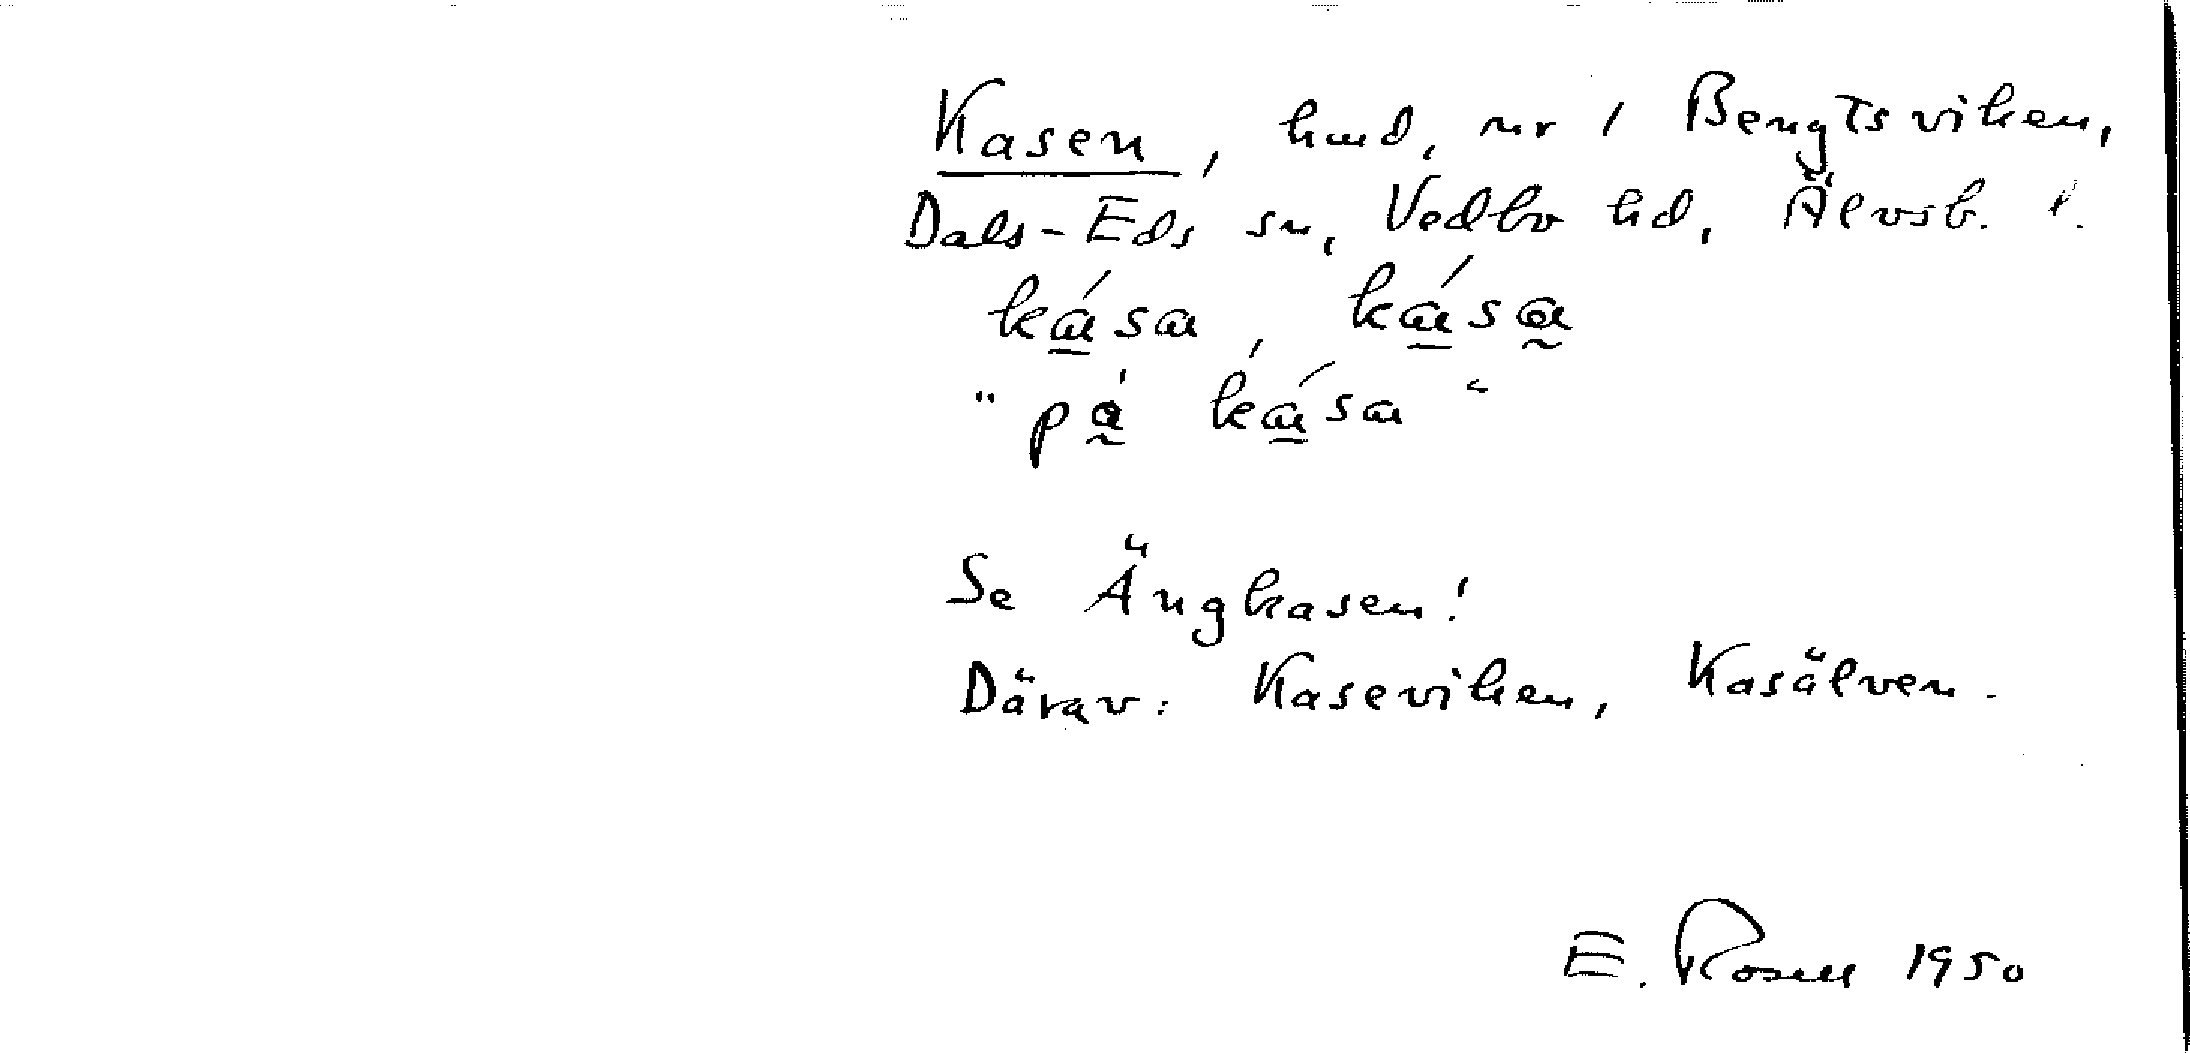 Kasen, hmd, nr 1 Bengtsviken,
Dals-Eds sn, Vedbo hd, Älvsb. l.
ká̱sa, ká̱sa̰
"pa̰̍ ká̱sa"
Se Ängkasen!
Därav: Kaseviken, Kasälven.
E. Rosell 1950